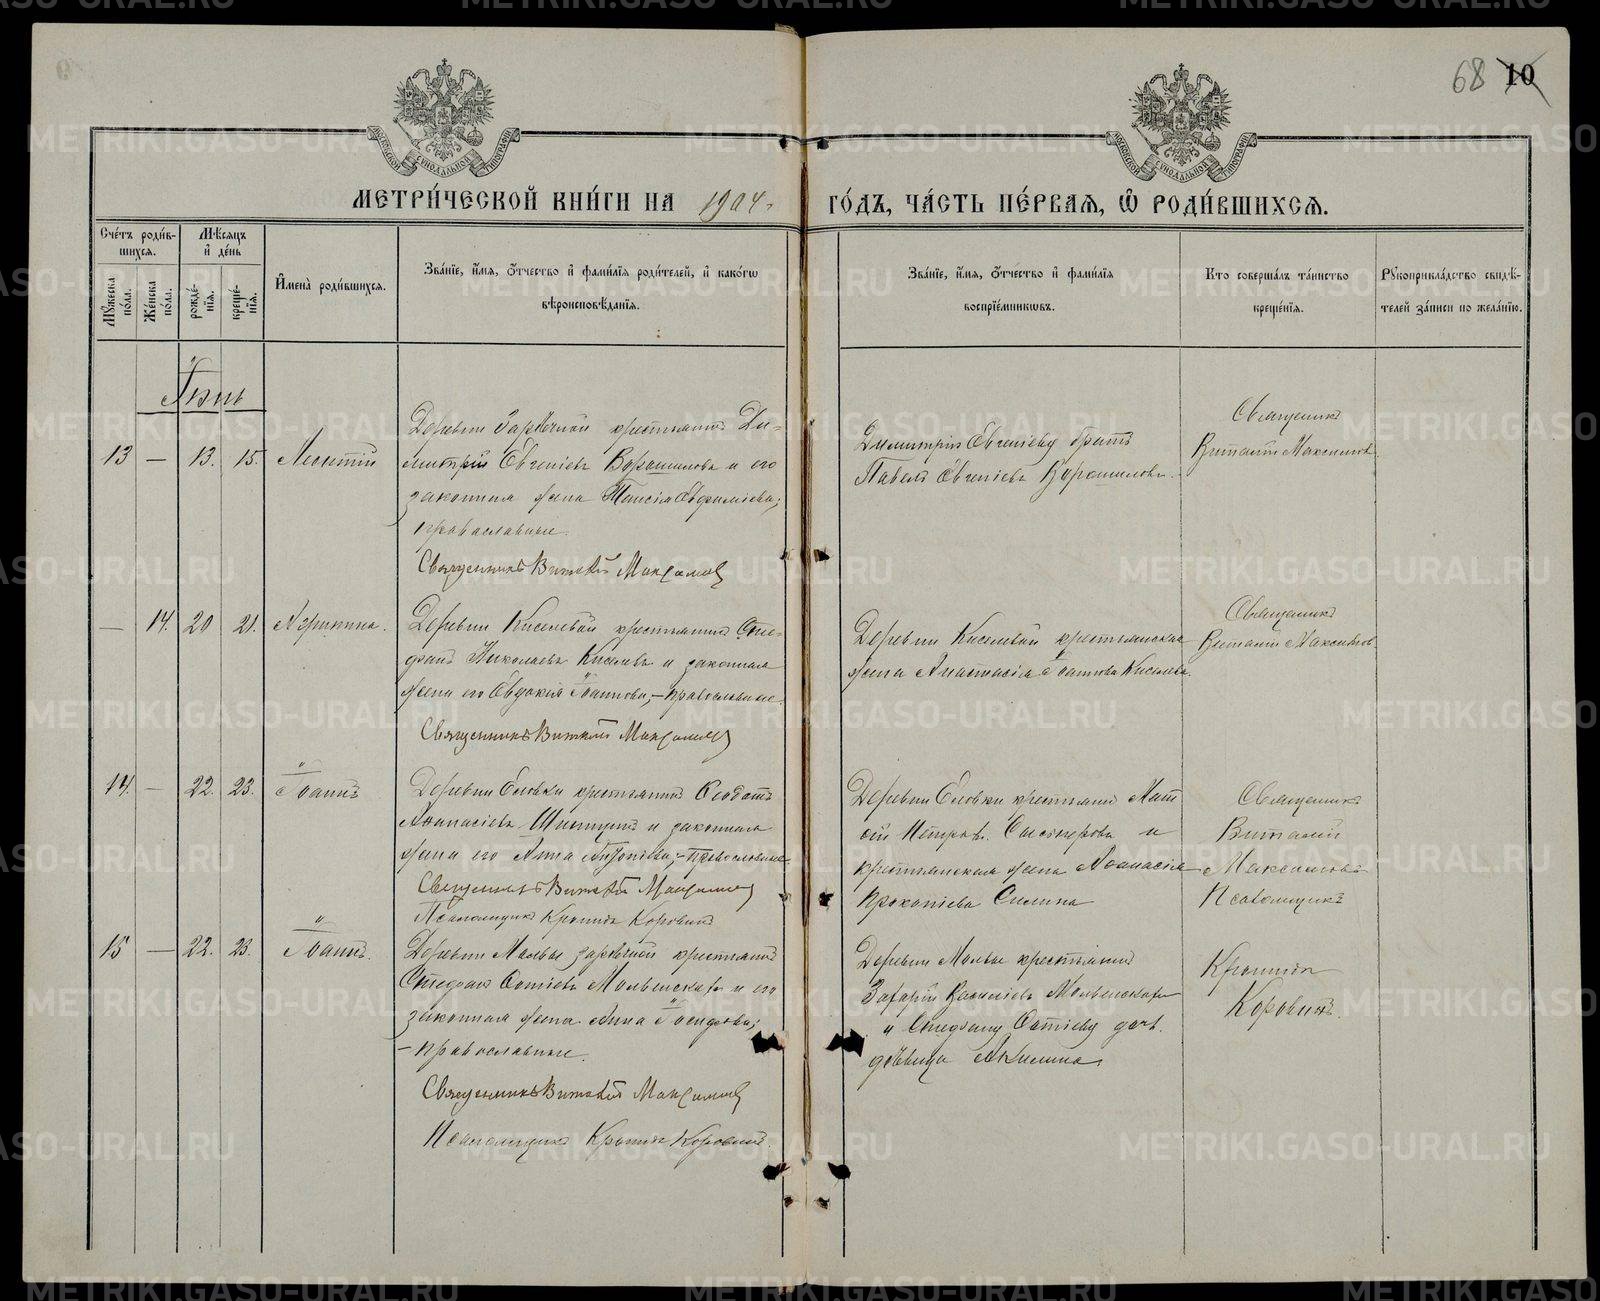 68 10
МОСКОВСКОЙ СУНОДАЛЬНОЙ ТИПОГРАФІИ
МОСКОВСКОЙ СУНОДАЛЬНОЙ ТИПОГРАФІИ
МЕТРИ́ЧЕСКОЙ КНИ́ГИ НА 1904 ГО́ДЪ, ЧА́СТЬ ПЕ́РВАѦ, Ѽ РОДИ́ВШИХСѦ.
Сче́тъ роди́в-
шихсѧ.
Мꙋ́жеска по́ла.
Же́нска по́ла.
Мѣ́сѧцъ и҆ де́нь
рожде́-нїѧ.
креще́-нїѧ.
И҆мена̀ роди́вшихсѧ.
Зва́нїе, и҆́мѧ, ѻ҆́тчество и҆ фами́лїѧ роди́телей, и҆ како́гѡ
вѣроисповѣ́данїѧ.
Зва́нїе, и҆́мѧ, ѻ҆́тчество и҆ фами́лїѧ
воспрїе́мникѡвъ.
Кто̀ соверша́лъ та́инство
креще́нїѧ.
Рꙋкоприкла́дство свидѣ́-
телей за́писи по жела́нїю.
Іюнь
13 — 13. 15. Леонтій
Деревни Зарѣчной крестьянинъ Ди-
митрій Евгеніевъ Ворошиловъ и его
законная жена Таисія Евфиміева;
православные.
Священникъ Виталій Максимовъ
Димитрія Евгеніеву братъ
Павелъ Евгеніевъ Ворошиловъ.
Священникъ
Виталій Максимовъ
— 14. 20 21. Агрипина.
Деревни Киселевой крестьянинъ Сте-
фанъ Николаевъ Киселевъ и законная
жена его Евдокія Іоаннова,—православные.
Священникъ Виталій Максимовъ
Деревни Киселевой крестьянская
жена Анастасія Іоаннова Киселева.
Священникъ
Виталій Максимовъ.
14. — 22. 23. Іоаннъ
Деревни Еловки крестьянинъ Ѳеодотъ
Аѳанасіевъ Шинкунъ и законная
жена его Анна Антоніева;—православные
Священникъ Виталій Максимовъ
Псаломщикъ Кронидъ Коровинъ
Деревни Еловки крестьянинъ Мат
ѳій Петровъ и
крестьянская жена Аѳанасія
Прокопіева Силина
Священникъ
Виталій
Максимовъ
Псаломщикъ
Кронидъ
Коровинъ.
15 — 22. 23. Іоаннъ.
Деревни Мальвы зарѣчной крестьянинъ
Стефанъ Ѳотіевъ и его
законная жена Анна Іосифова;
— православные.
Священникъ Виталій Максимовъ
Псаломщикъ Кронидъ Коровинъ.
Деревни Мальвы крестьянинъ
Захарій Василіевъ
и Стефану Ѳотіеву дочь
дѣвица Акилина.
METRIKI.GASO-URAL.RU